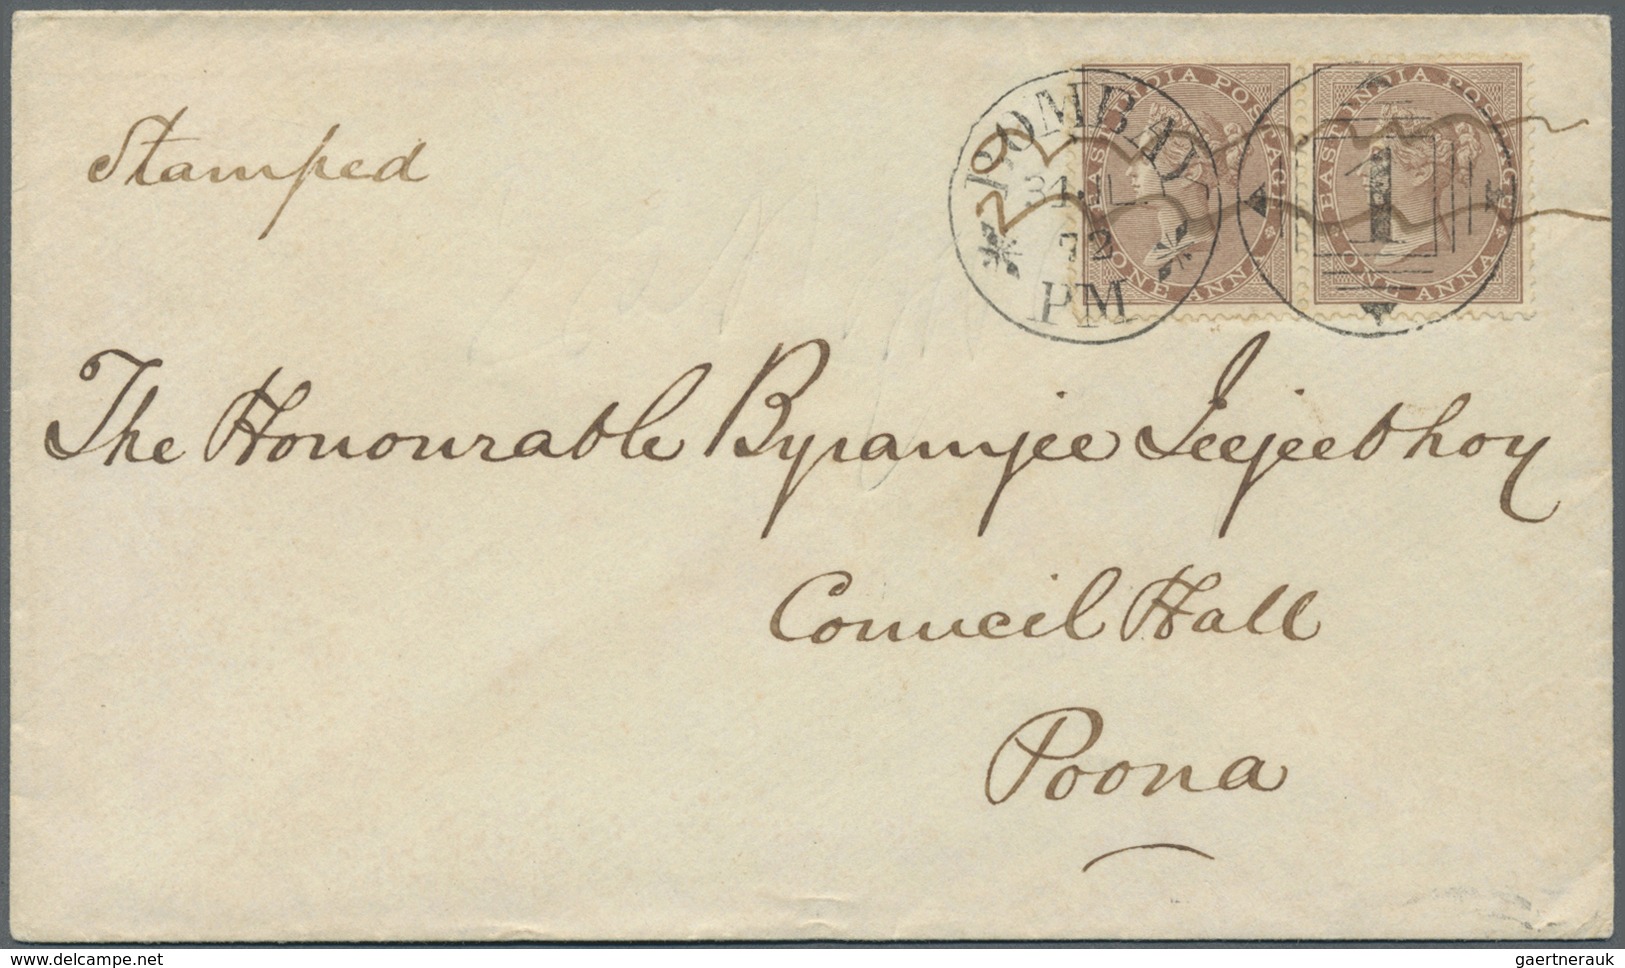 Stamped
EAST INDIA POSTAGE
ONE ANNA
EAST INDIA POSTAGE
ONE ANNA
BOMBAY
72
PM
1
The Honourable Byramjee Jeejeebhoy
Council Hall
Poona
www.delcampe.net
gaertnerauk